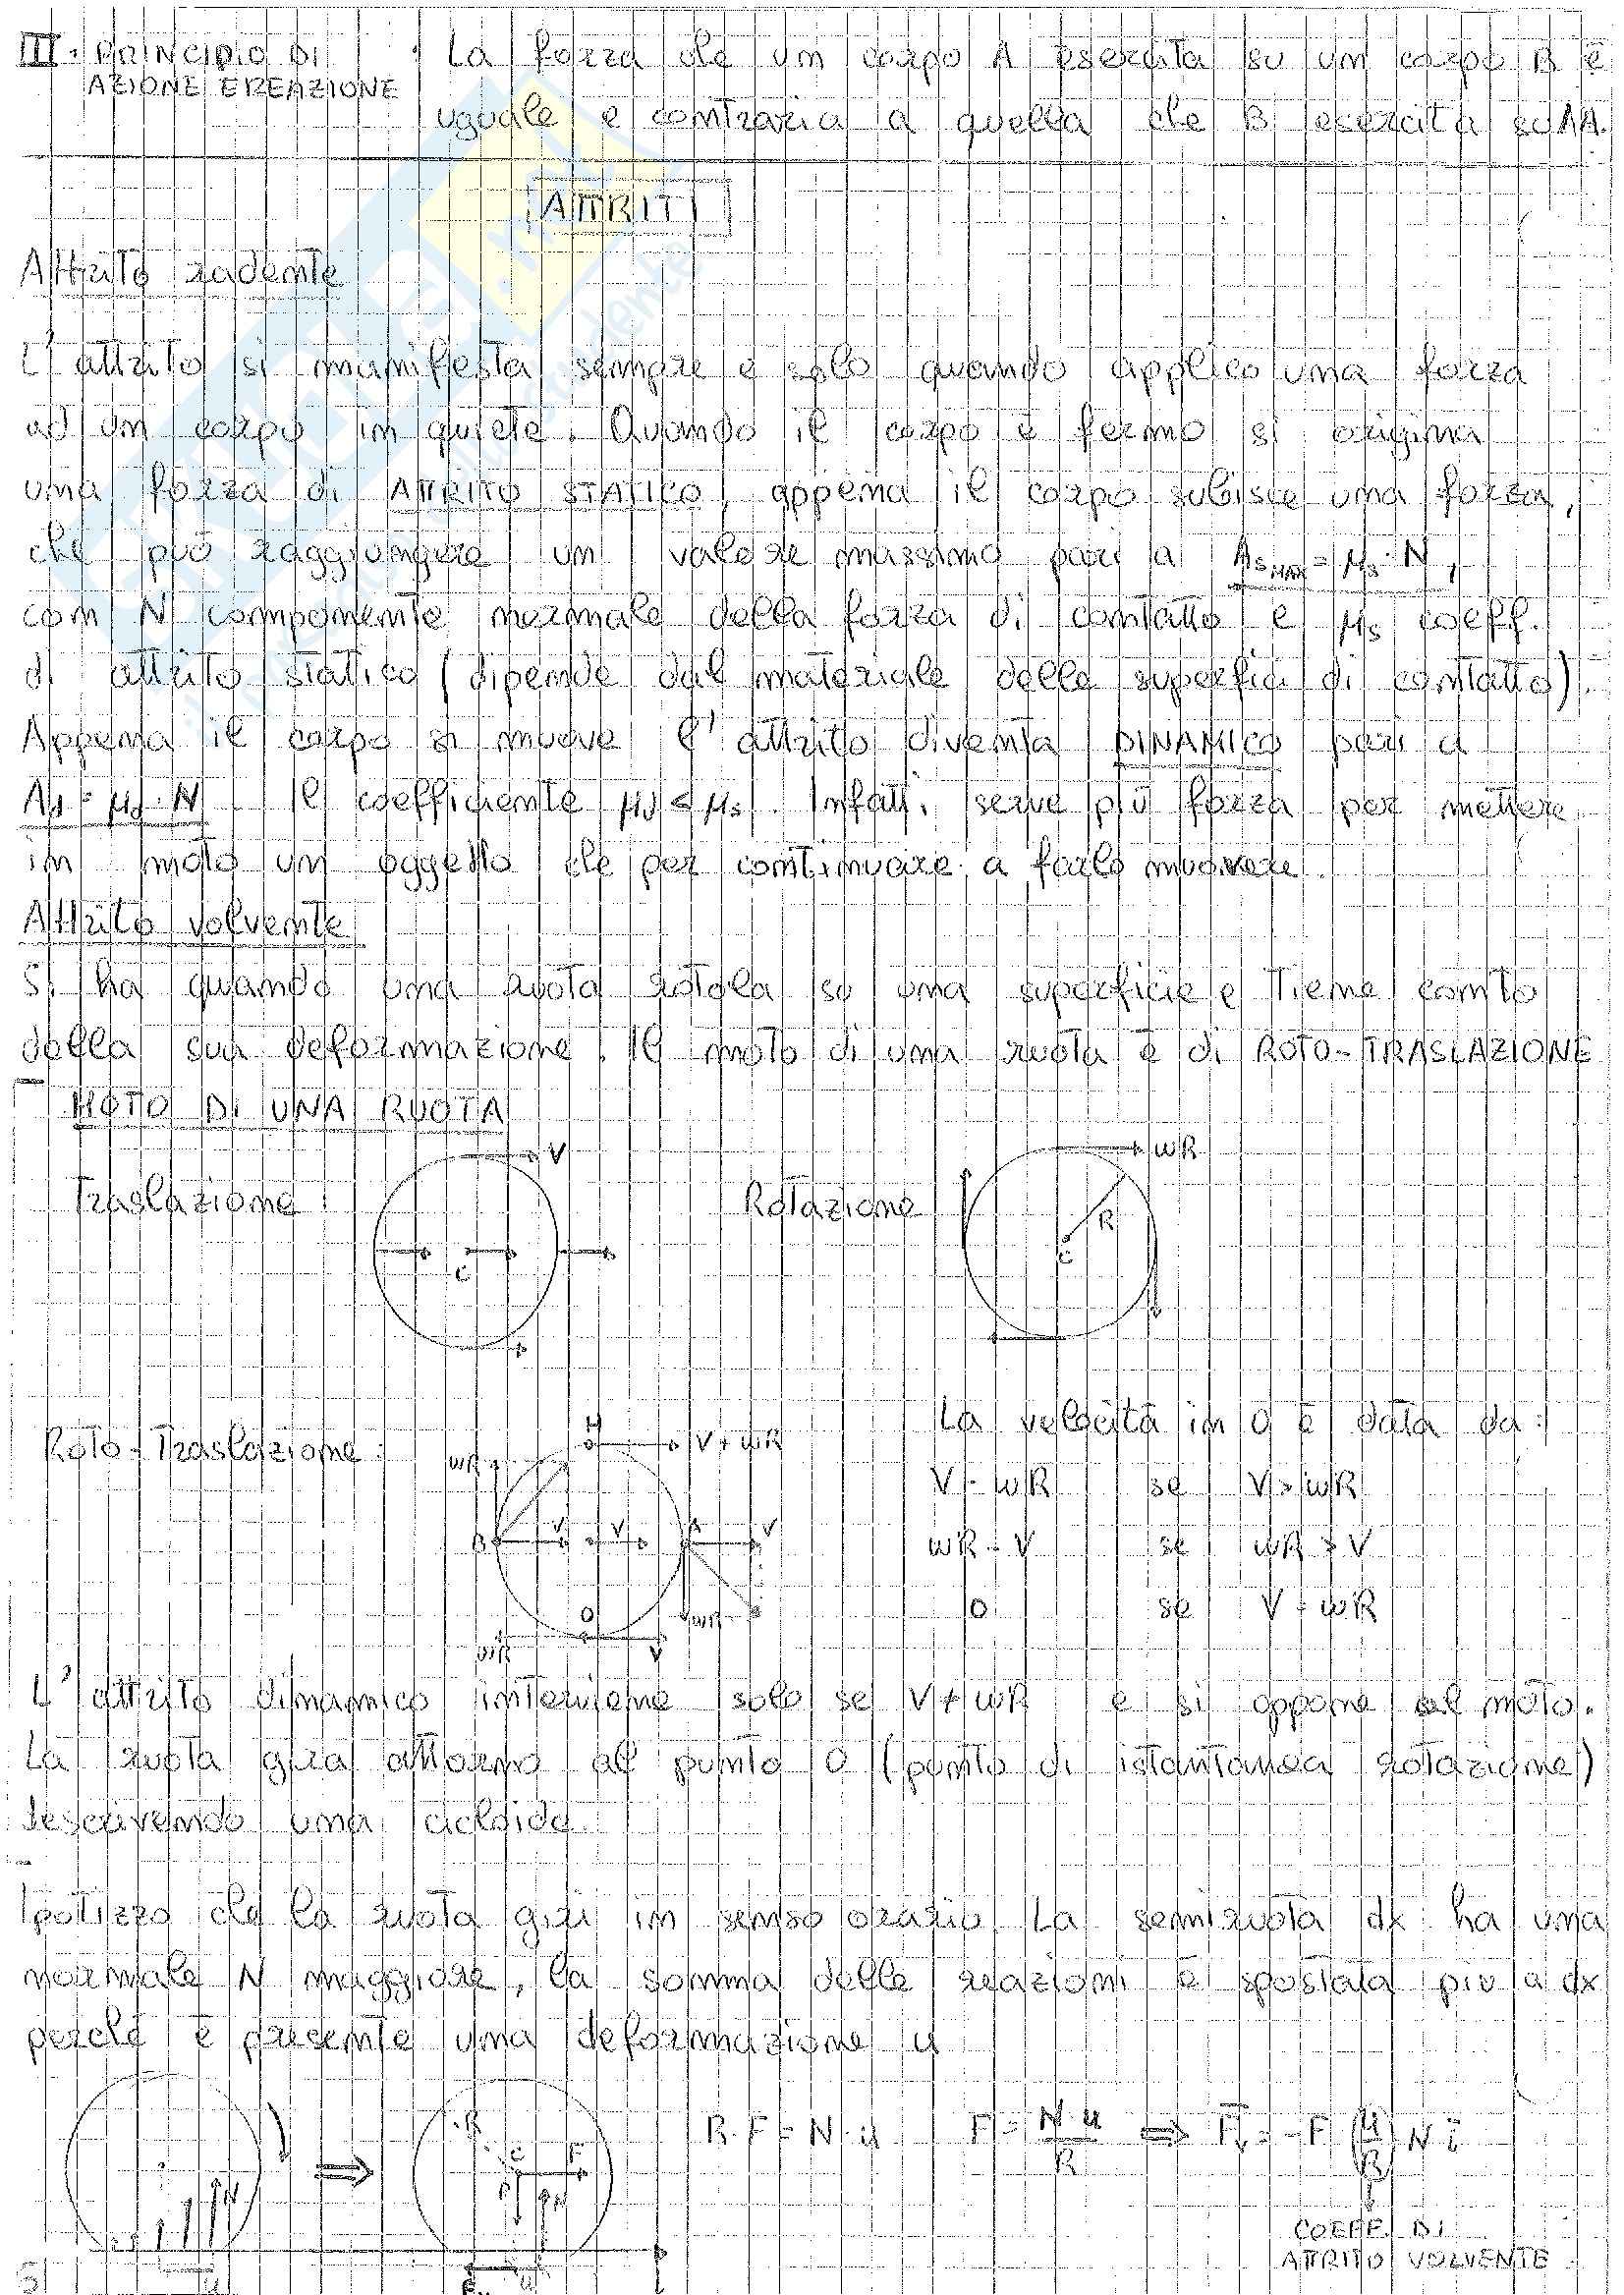 III. PRINCIPIO DI : La forza che un corpo A esercita su un corpo B è
AZIONE E REAZIONE uguale e contraria a quella che B esercita su A.
ATTRITI
Attrito radente
L'attrito si manifesta sempre e solo quando applico una forza
ad un corpo in quiete. Quando il corpo è fermo si origina
una forza di ATTRITO STATICO, appena il corpo subisce una forza,
che può raggiungere un valore massimo pari a As MAX = μs · N,
con N componente normale della forza di contatto e μs coeff.
di attrito statico (dipende dal materiale delle superfici di contatto).
Appena il corpo si muove l'attrito diventa DINAMICO pari a
Ad = μd · N. Il coefficiente μd < μs. Infatti serve più forza per mettere
in moto un oggetto che per continuare a farlo muovere.
Attrito volvente
Si ha quando una ruota rotola su una superficie e tiene conto
della sua deformazione. Il moto di una ruota è di ROTO-TRASLAZIONE
MOTO DI UNA RUOTA
Traslazione: V C
Rotazione ωR R C
Roto-Traslazione: H V+ωR ωR B V V A V O ωR ωR V
La velocità in O è data da:
V - ωR se V > ωR
ωR - V se ωR > V
0 se V = ωR
L'attrito dinamico interviene solo se V ≠ ωR e si oppone al moto.
La ruota gira attorno al punto O (punto di istantanea rotazione)
descrivendo una cicloide.
Ipotizzo che la ruota giri in senso orario. La semiruota dx ha una
normale N maggiore, la somma delle reazioni è spostata più a dx
perché è presente una deformazione u
N R C F P N u
R·F = N·u F = N·u / R ⇒ Fv = -F (u/R) N i
COEFF. DI
ATTRITO VOLVENTE
5